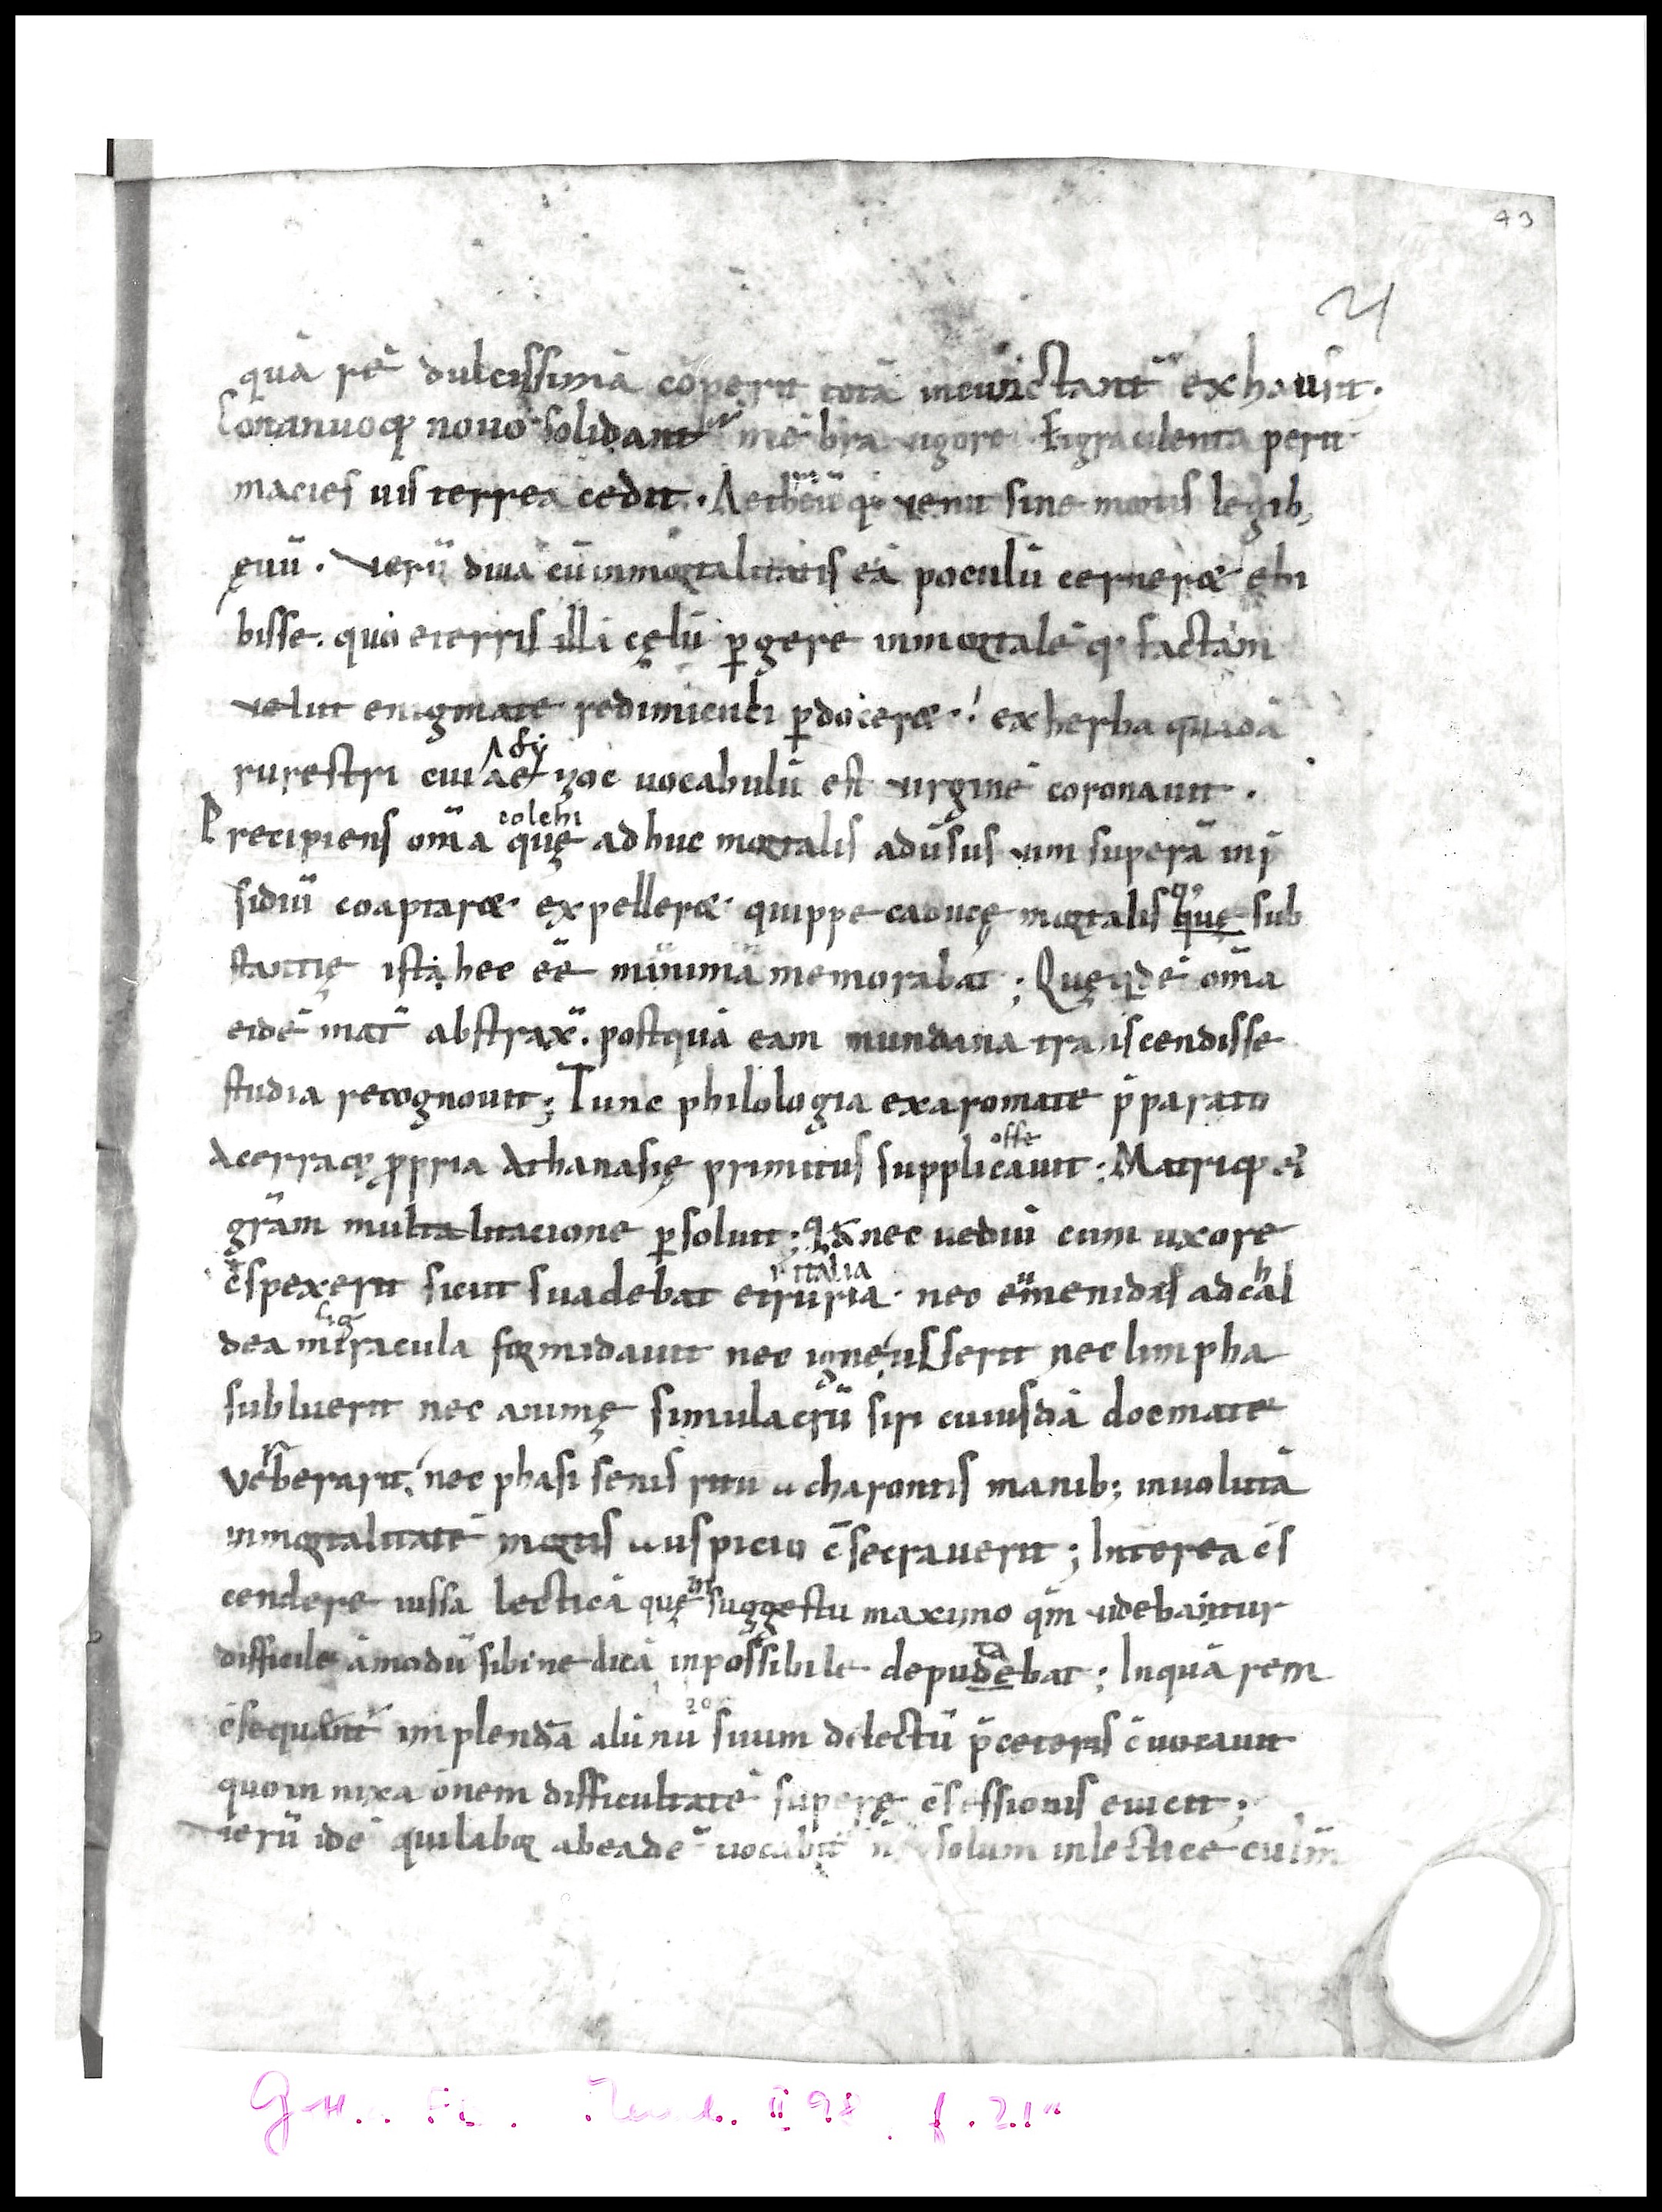 43
21
quā rē dulcissimā cōperit totā incunctant̄ exhausit.
Conanuoq; nouo solidant̄ mēbra uigore & graculenta perit
macies uis terrea cedit. Aetheriū q; uenit sine mortis legib;
ęuū. Verū diua cū inmortalitatis eā poculū cerneret ebi
bisse. quo eterris illā cęlū ꝑgere inmortalē q; factam
velut enigmate redimiculi ꝑdoceret. ex herba quadā
rurestri cui aeyzoc uocabulū est uirginē coronauit.
colchi
Precipiens om̄a quę adhuc mortalis aduͤsus uim superā in p̄
sidiū coaptaret expelleret quippe caducę mortalis quę sub
stantię ista hec eē minimā memorabat; Quęq̇dē om̄a
eidē mat̄ abstrax̄. postquā eam mundana transcendisse
studia recognouit; Tunc philologia exaromate p̄parato
offe
Acerraq; ꝓpria Athanasię primitus supplicauit; Matriq; ei
gr̄am multa litacione ꝑsoluit; qđ nec uediū cum uxore
italia
c̄spexerit sicut suadebat etruria. nec eumenidas ad chal
lig
dea miracula formidauit nec igne usserit nec limpha
subluerit nec animę simulacrū siri cuiusdā docmate
verberarit. nec phasi senis ritu a charontis manib; inuolutā
inmortalitatē mortis auspicio c̄secrauerit; Interea c̄s
cendere iussa lecticā quę in suggestu maximo qm̄ uidebantur
difficile āmodū sibi ne dicā inpossibile depudebat; Inquā rem
c̄sequent̄ implendā alūnū suum delectū p̄ceteris c̄uocauit
quo in nixa om̄nem difficultatē superę c̄sessionis euicit;
verū idē qui labor abeadē uocabit̄ n̄ solum in lecticę culm̄